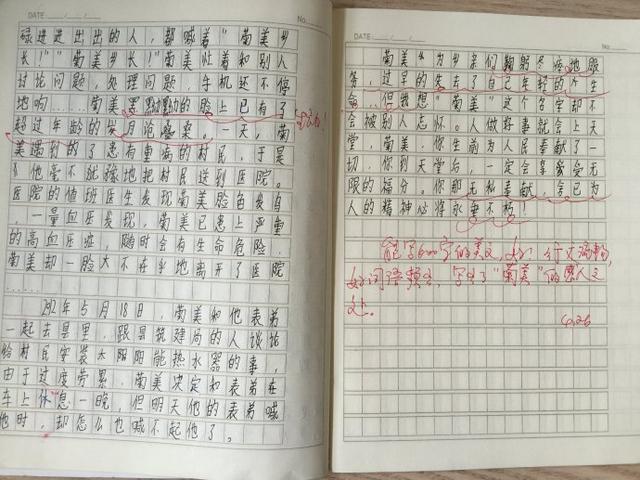 DATE
No.
碌进进出出的人，都喊着"菊美乡
长！""菊美乡长！"菊美灶着和别人
讨论问题，处理问题，手机还不停
地响……菊美黑黝黝的脸上已有了
超过年龄的岁月沧桑。一天，菊
美遇到的了患有重病的村民，于是
他毫不犹豫地把村民送到医院。
医院的值班医生发现菊美脸色发白
，一量血压发现，菊美已患上严重
的高血压症，随时会有生命危险。
菊美却一脸大不在乎地离开了医院
……
2012年5月18日，菊美和他表弟
一起去县里，跟县筑建局的人谈论
给村民安装太阳阳能热水器的事，
由于过度劳累，菊美决定和表弟在
车上休息一晚，但明天他的表弟喊
他时，却怎么也喊不起他了。
DATE
No.
菊美为乡亲们鞠躬尽瘁地服
务，过早的失去了自己年轻的生
命，但我想"菊美"这个名字却不
会被别人忘怀。人做好事就会上天
堂，菊美，你生前为人民奉献了一
切，你到天堂后，一定会享受受无
限的福分。你那无私奉献，舍己为
人的精神必将永垂不朽！
能写600字的美文，好！行文流畅，
好词语频出，写出了"菊美"的感人之
处。